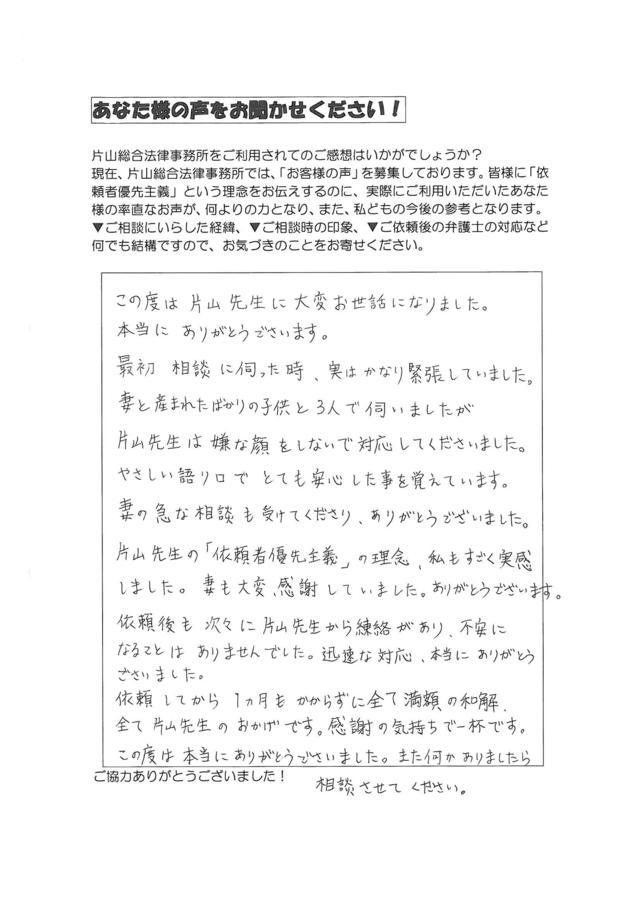 あなた様の声をお聞かせください!
片山総合法律事務所をご利用されてのご感想はいかがでしょうか?
現在、片山総合法律事務所では、「お客様の声」を募集しております。皆様に「依
頼者優先主義」という理念をお伝えするのに、実際にご利用いただいたあなた
様の率直なお声が、何よりの力となり、また、私どもの今後の参考となります。
▼ご相談にいらした経緯、▼ご相談時の印象、▼ご依頼後の弁護士の対応など
何でも結構ですので、お気づきのことをお寄せください。
この度は片山先生に大変お世話になりました。
本当にありがとうございます。
最初 相談に伺った時、実はかなり緊張していました。
妻と産まれたばかりの子供と3人で伺いましたが
片山先生は嫌な顔をしないで対応してくださいました。
やさしい語り口でとても安心した事を覚えています。
妻の急な相談も受けてくださり、ありがとうございました。
片山先生の「依頼者優先主義」の理念、私もすごく実感
しました。妻も大変、感謝していました。ありがとうございます。
依頼後も次々に片山先生から練絡があり、不安に
なることはありませんでした。迅速な対応、本当にありがとう
ございました。
依頼してから1ヵ月もかからずに全て満額の和解、
全て片山先生のおかげです。感謝の気持ちで一杯です。
この度は本当にありがとうございました。また何かありましたら
ご協力ありがとうございました!
相談させてください。